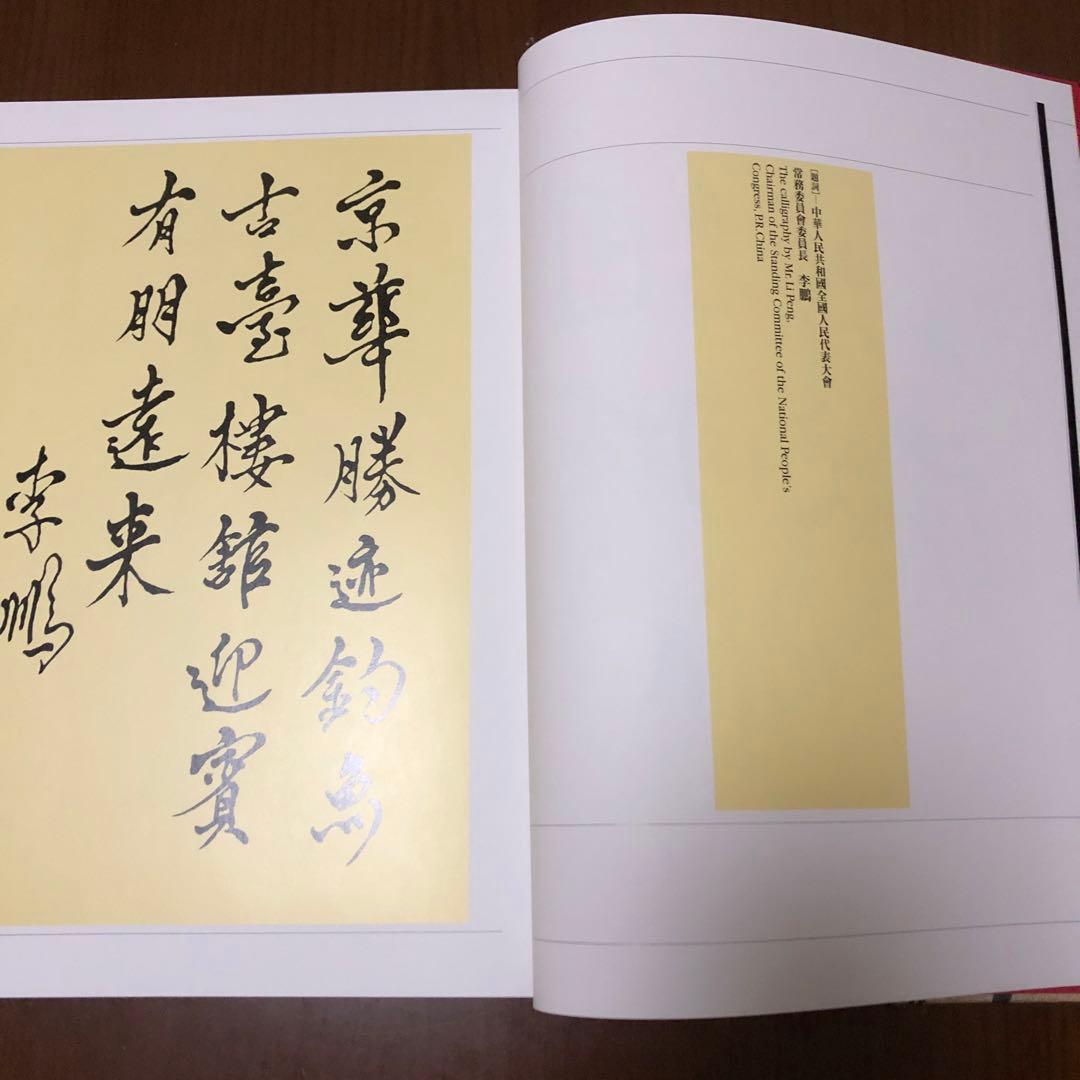 京華勝迹釣魚
古臺樓館迎賓
有朋遠来
李鵬
[題詞]—中華人民共和國全國人民代表大會
常務委員會委員長 李鵬
The calligraphy by Mr. Li Peng,
Chairman of the Standing Committee of the National People's
Congress, P.R.China